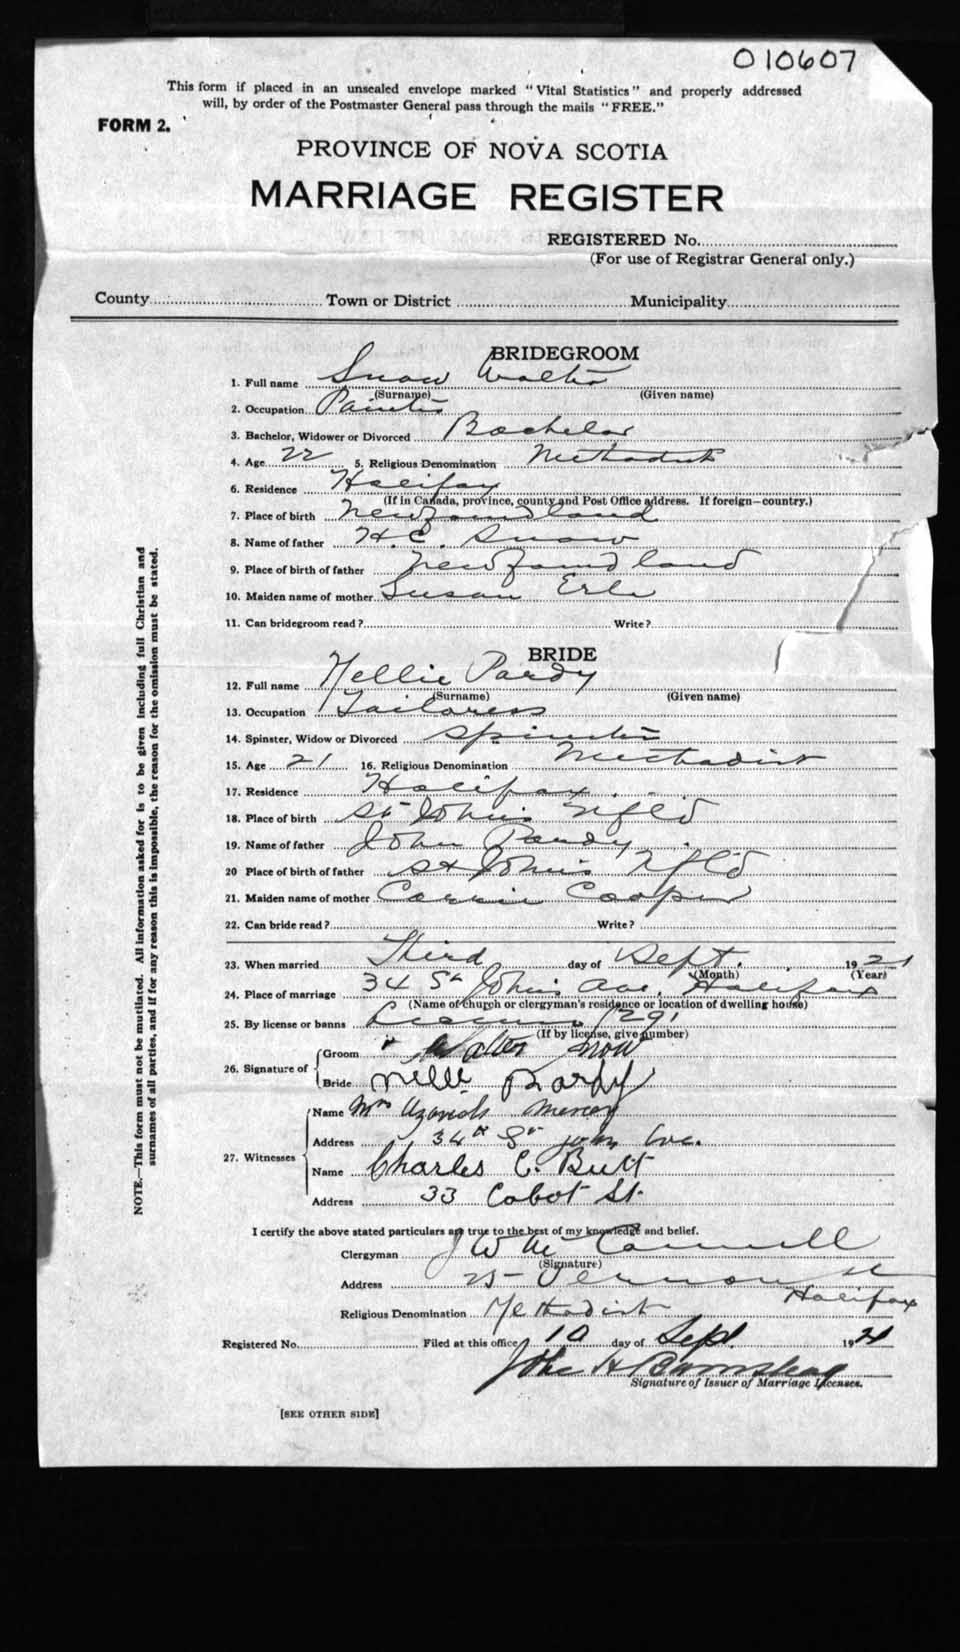 010607
This form if placed in an unsealed envelope marked "Vital Statistics" and properly addressed
will, by order of the Postmaster General pass through the mails "FREE."
FORM 2.
PROVINCE OF NOVA SCOTIA
MARRIAGE REGISTER
REGISTERED No.
(For use of Registrar General only.)
County Town or District Municipality
BRIDEGROOM
1. Full name Snow Walter
(Surname) (Given name)
2. Occupation Painter
3. Bachelor, Widower or Divorced Bachelor
4. Age 22 5. Religious Denomination Methodist
6. Residence Halifax
(If in Canada, province, county and Post Office address. If foreign—country.)
7. Place of birth Newfoundland
8. Name of father H. E. Snow
9. Place of birth of father Newfoundland
10. Maiden name of mother Susan Erle
11. Can bridegroom read? Write?
BRIDE
12. Full name Nellie Pardy
(Surname) (Given name)
13. Occupation Tailoress
14. Spinster, Widow or Divorced Spinster
15. Age 21 16. Religious Denomination Methodist
17. Residence Halifax
18. Place of birth St John's Nfl'd
19. Name of father John Pardy
20 Place of birth of father St John's Nfl'd
21. Maiden name of mother Cooper
22. Can bride read? Write?
23. When married Third day of Sept. 1921
(Month) (Year)
24. Place of marriage 34 St John's Ave, Halifax
(Name of church or clergyman's residence or location of dwelling house)
25. By license or banns License 1291
(If by license, give number)
26. Signature of
Groom Walter Snow
Bride Nelle Pardy
27. Witnesses
Name Mrs Mercer
Address 34 St John Ave.
Name Charles C. Butt
Address 33 Cabot St.
I certify the above stated particulars are true to the best of my knowledge and belief.
Clergyman J W McConnell
(Signature)
Address 25 Vernon St
Halifax
Religious Denomination Methodist
Registered No. Filed at this office 10 day of Sept. 1921
John H Barnstead
Signature of Issuer of Marriage Licenses.
[SEE OTHER SIDE]
NOTE.—This form must not be mutilated. All information asked for is to be given including full Christian and
surnames of all parties, and if for any reason this is impossible, the reason for the omission must be stated.